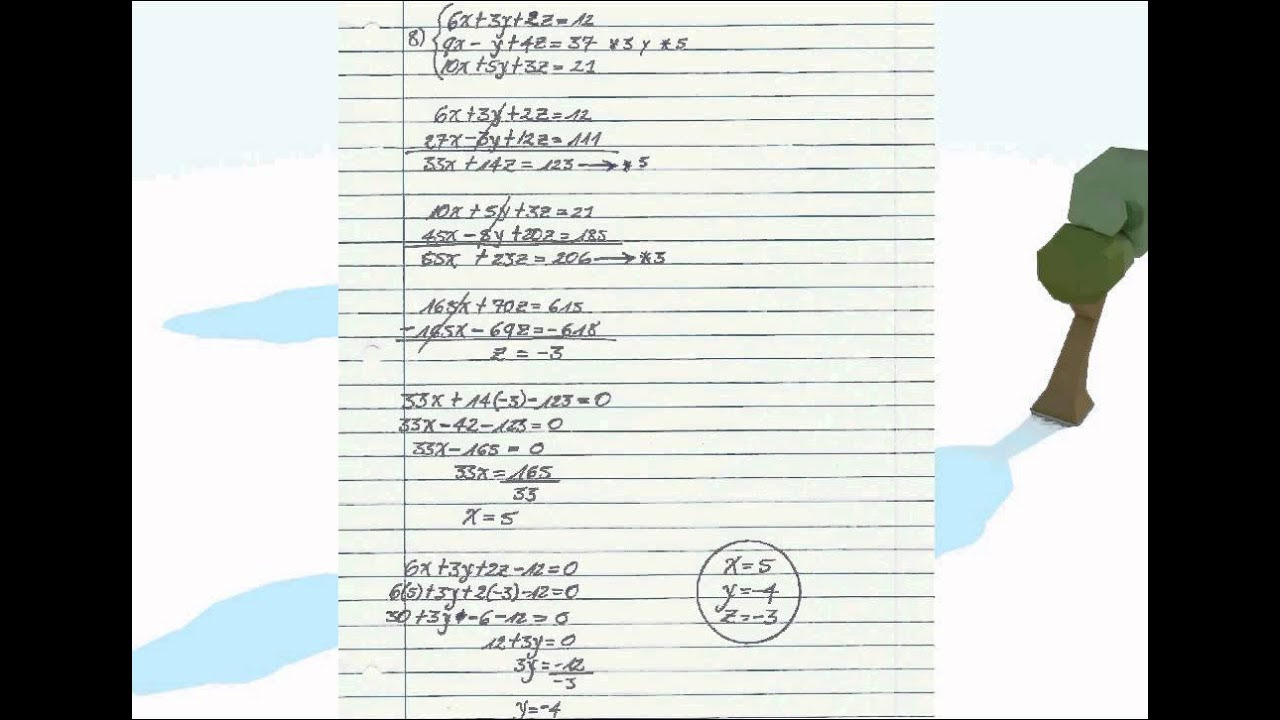 8) 6x+3y+2z=12
9x-y+4z=37 *3 y *5
10x+5y+3z=21
6x+3y+2z=12
27x-3y+12z=111
33x+14z=123→*5
10x+5y+3z=21
45x-5y+20z=185
55x +23z=206→*3
165x+70z=615
-165x-69z=-618
z=-3
33x+14(-3)-123=0
33x-42-123=0
33x-165=0
33x=165
33
x=5
6x+3y+2z-12=0
6(5)+3y+2(-3)-12=0
30+3y-6-12=0
12+3y=0
3y=-12
-3
y=-4
x=5
y=-4
z=-3